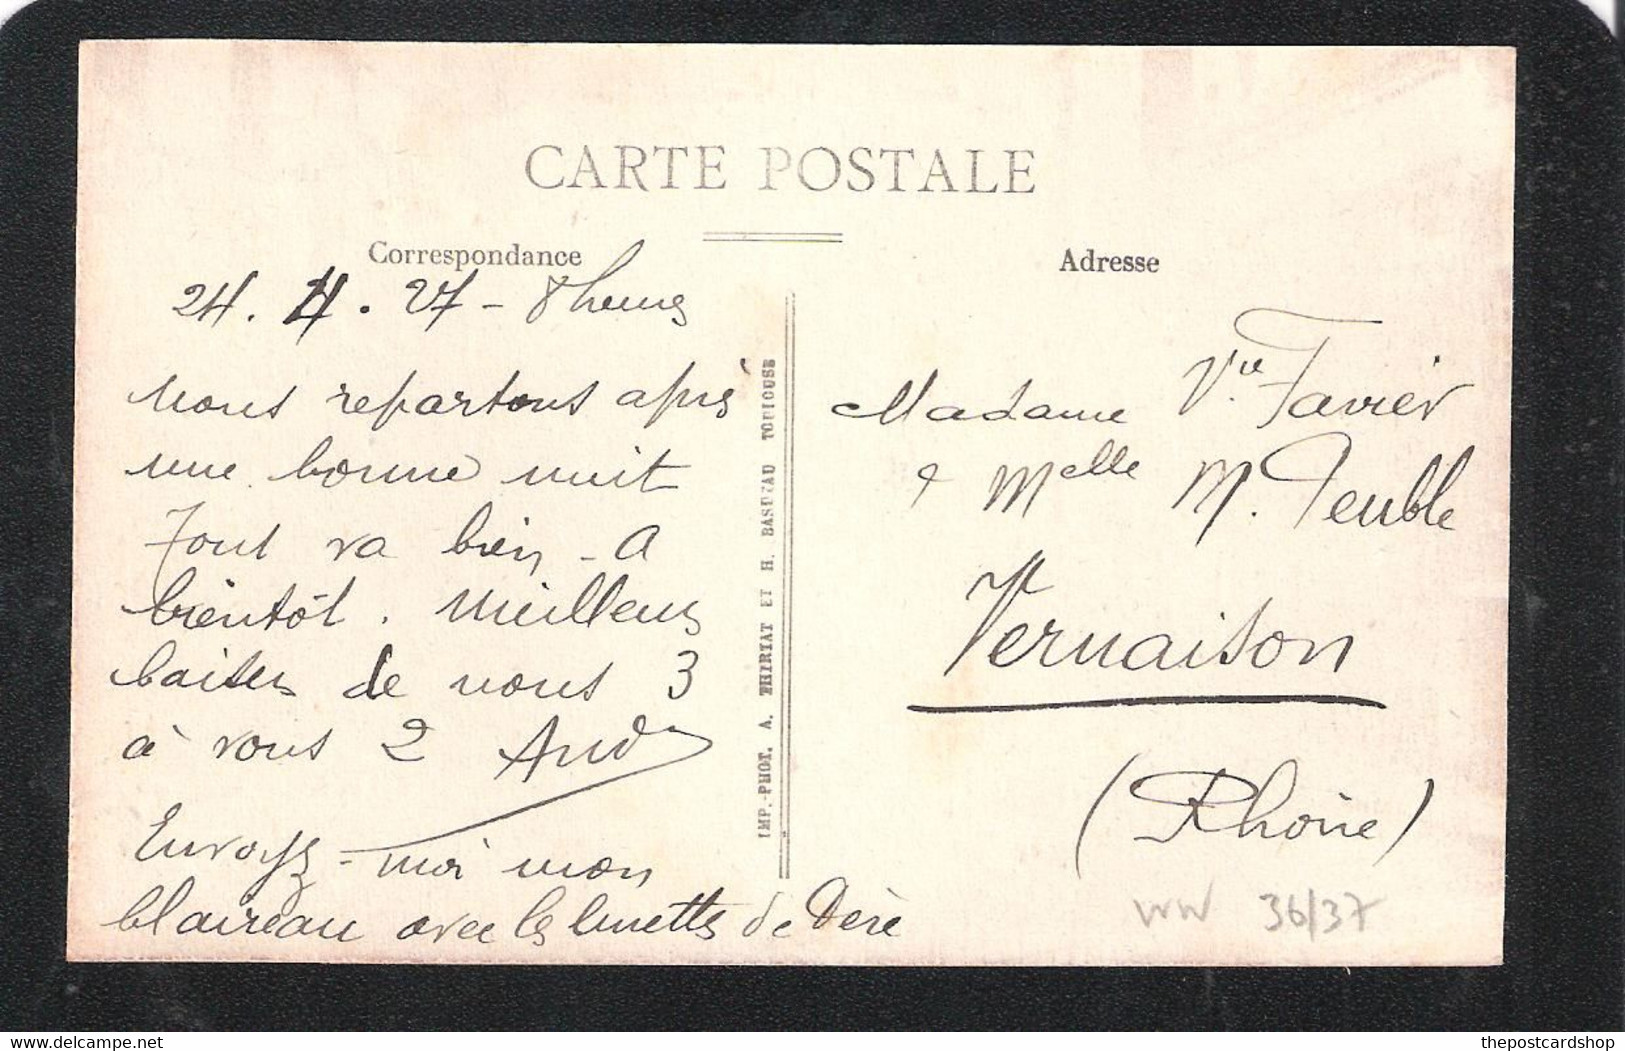 CARTE POSTALE
Correspondance
24. 4. 27 - 8 heures
Nous repartons après
une bonne nuit
Tout va bien - A
bientôt. Meilleurs
baisers de nous 3
à vous 2
Envoyez-moi mon
blaireau avec les lunettes de Père
IMP.-PHOT. A. THIRIAT ET H. BASUYAU TOULOUSE
Adresse
Madame Vve Favier
& Melle M. Peuble
Vernaison
(Rhône)
WW 36/37
delcampe.net
thepostcardshop